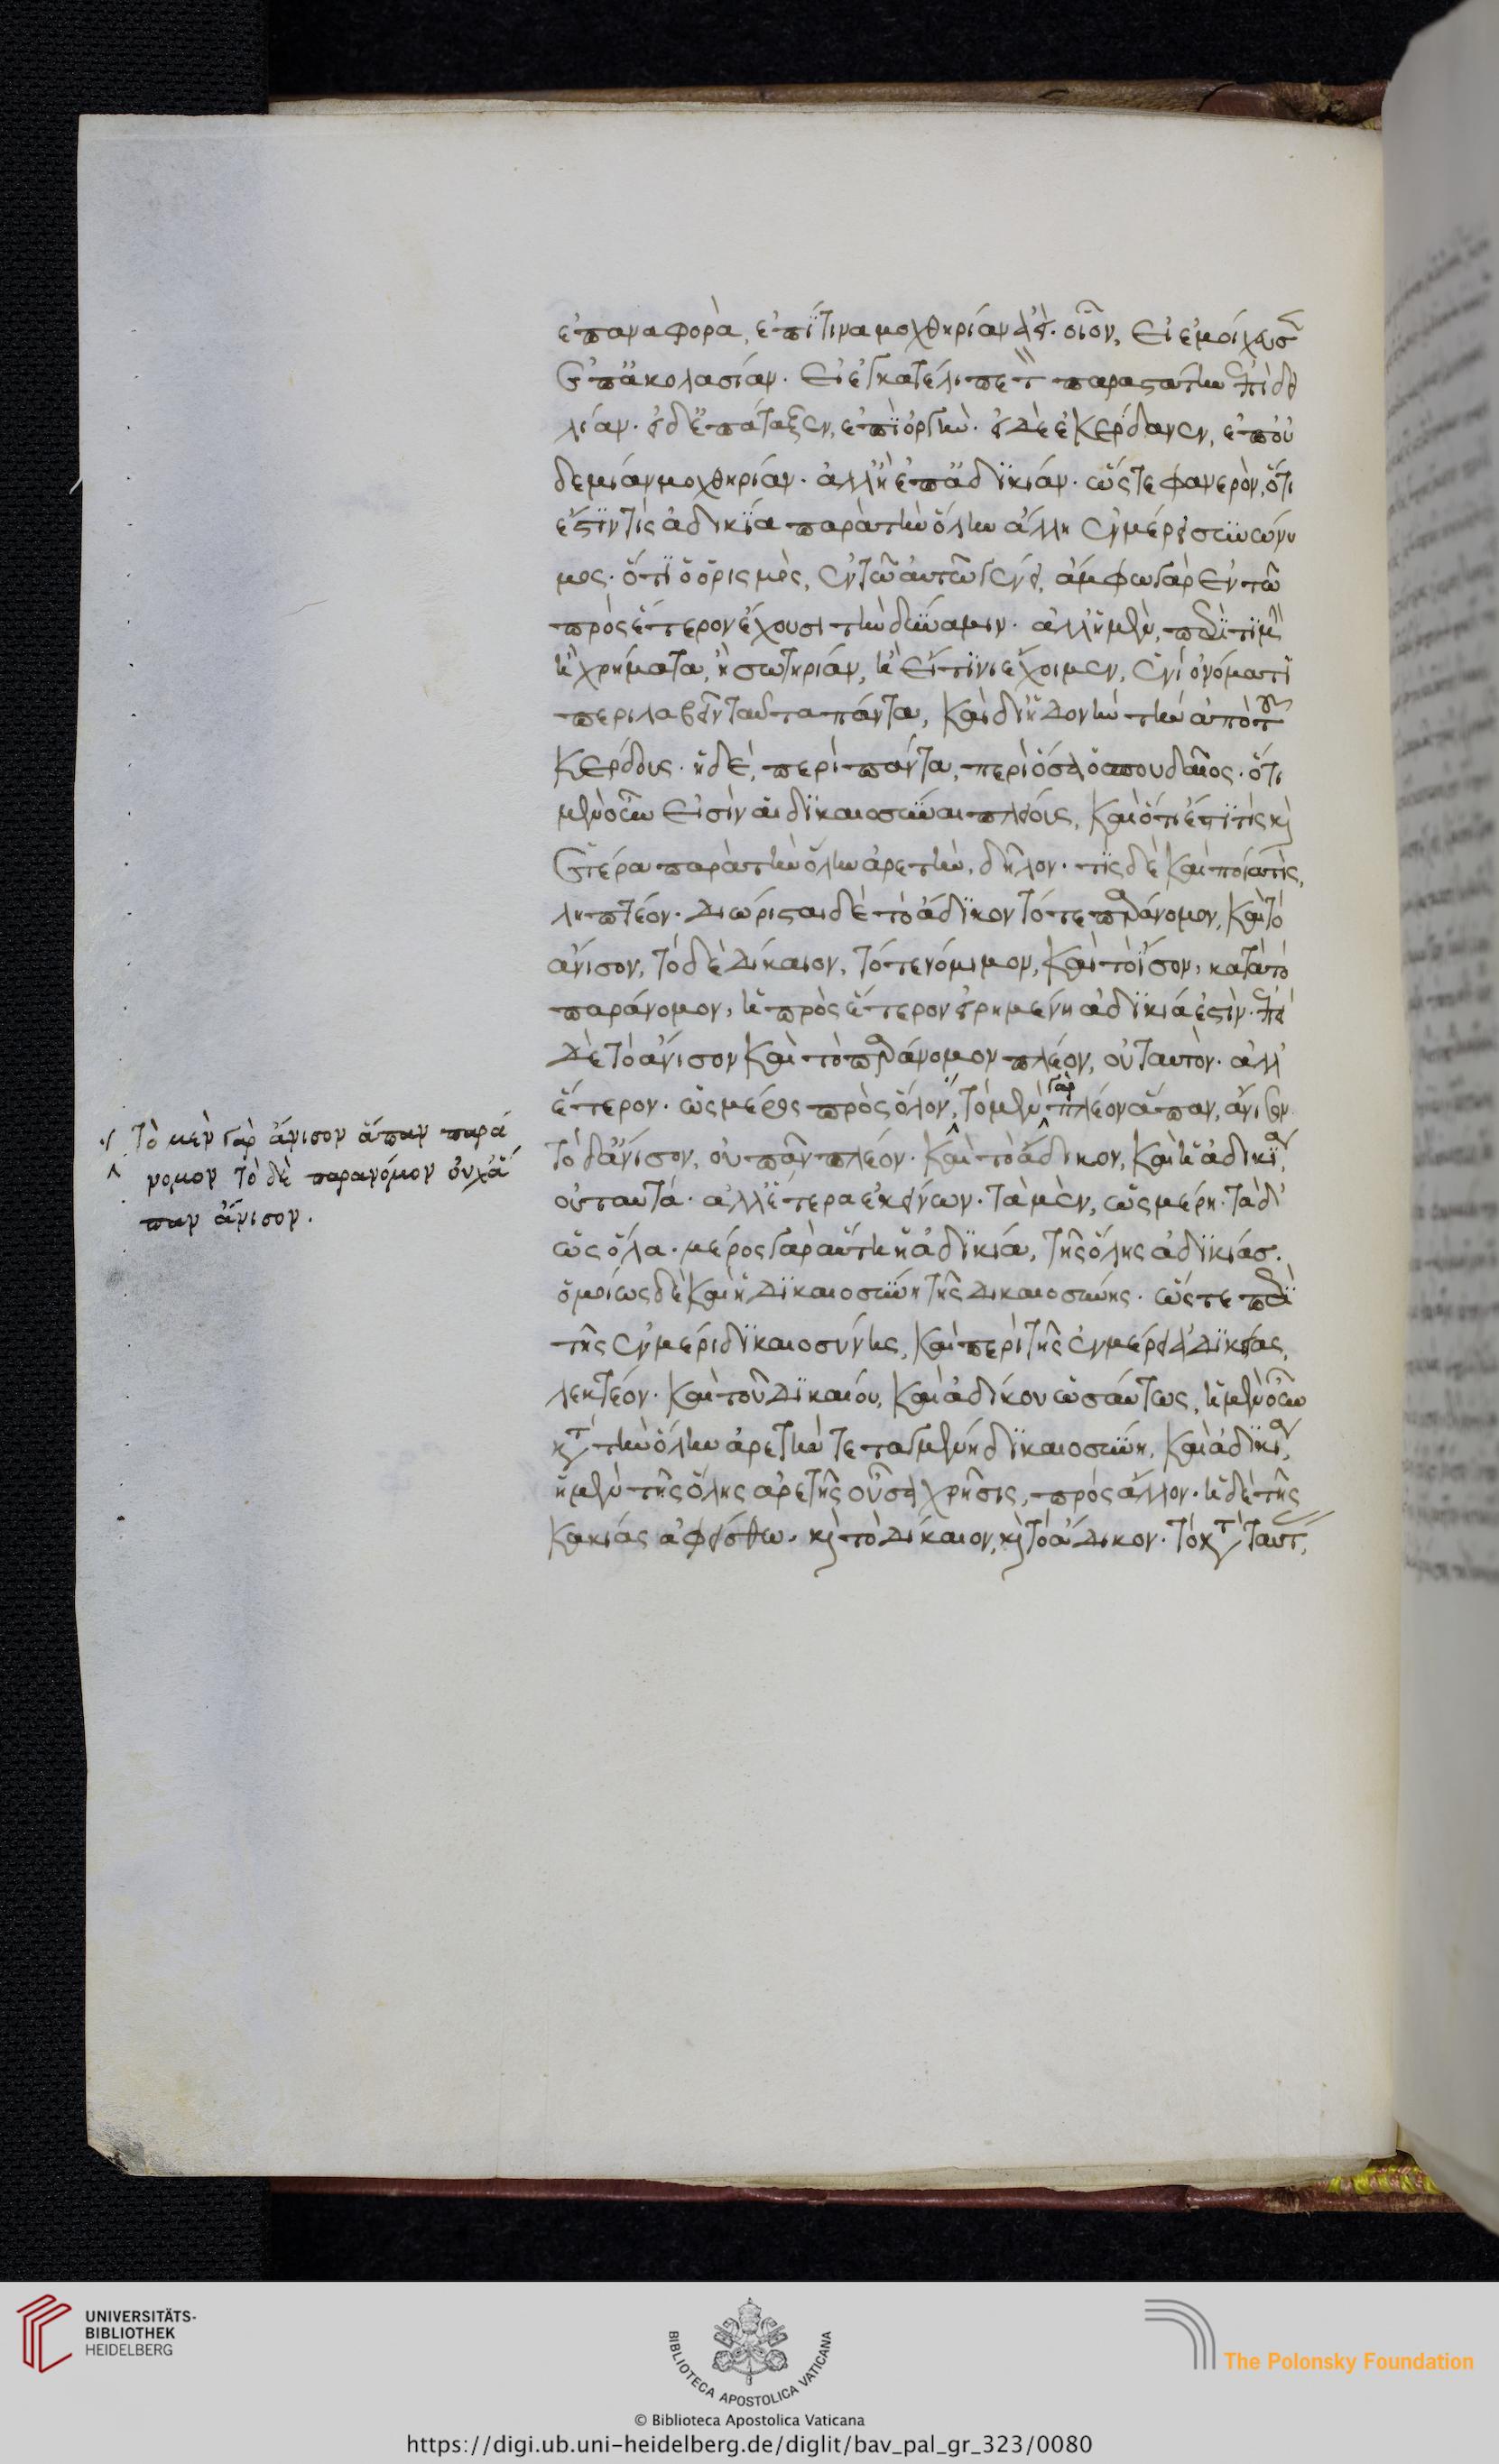 ἐπαναφορὰ, ἐπί τινα μοχθηρίαν ἀεί. οἷον, εἰ ἐμοίχευσ
ἐπ' ἀκολασίαν. εἰ ἐγκατέλιπε τ παραστάτην ἐπὶ δει
λίαν. εἰ δ' ἐπάταξεν, ἐπὶ ὀργήν. εἰ δὲ ἐκέρδανεν, ἐπ' οὐ
δεμίαν μοχθηρίαν. ἀλλ' ἢ ἐπ' ἀδικίαν. ὥστε φανερὸν, ὅτι
ἔστιν τὶς ἀδικία παρὰ τὴν ὅλην ἄλλη ἐν μέρει συνώνυ
μος. ὅτι ὁ ὁρισμὸς, ἐν τῶ αὐτῶ γένει. ἄμφω γὰρ ἐν τῶ
πρὸς ἕτερον ἔχουσι τὴν δύναμιν. ἀλλ' ἡ μὲν, περὶ τιμὴν
ἢ χρήματα, ἢ σωτηρίαν, ἢ εἴ τινι ἔχοιμεν, ἑνὶ ὀνόματι
περιλαβεῖν ταῦτα πάντα, καὶ δι' ἡδονὴν τὴν ἀπὸ τοῦ
κέρδους. ἡ δὲ, περὶ πάντα, περὶ ὅσα ὁ σπουδαῖος. ὅτι
μὲν οὖν εἰσὶν αἱ δικαιοσύναι πλείους, καὶ ὅτι ἔστι τὶς κὶ
ἑτέρα παρὰ τὴν ὅλην ἀρετὴν, δῆλον. τίς δὲ καὶ ποία τὶς,
ληπτέον. διώρισται δὲ τὸ ἄδικον τό τε παράνομον, καὶ τὸ
ἄνισον, τὸ δὲ δίκαιον, τό τε νόμιμον, καὶ τὸ ἴσον, κατὰ τὸ
παράνομον, ἡ πρὸς ἕτερον εἰρημένη ἀδικία ἐστίν. ἐπεὶ
δὲ τὸ ἄνισον καὶ τὸ παράνομον πλέον, οὐ ταυτὸν. ἀλλ'
ἕτερον. ὡς μέρος πρὸς ὅλον, τὸ μὲν γὰρ πλέον ἅπαν, ἄνισον
τὸ δ' ἄνισον, οὐ πᾶν πλέον. καὶ τὸ ἄδικον, καὶ ἡ ἀδικία,
οὐ ταυτά. ἀλλ' ἕτερα ἐκείνων. τὰ μὲν, ὡς μέρη. τὰ δ'
ὡς ὅλα. μέρος γὰρ αὕτη ἡ ἀδικία, τῆς ὅλης ἀδικίας.
ὁμοίως δὲ καὶ ἡ δικαιοσύνη τῆς δικαιοσύνης. ὥστε περὶ
τῆς ἐν μέρι δικαιοσύνης, καὶ περὶ τῆς ἐν μέρει ἀδικίας,
λεκτέον. καὶ τοῦ δικαίου, καὶ ἀδίκου ὡσαύτως, ἡ μὲν οὖν
κτ τὴν ὅλην ἀρετὴν τεταγμένη δικαιοσύνη, καὶ ἀδικία,
ἡ μὲν τῆς ὅλης ἀρετῆς οὖσα χρῆσις, πρὸς ἄλλον. ἡ δὲ τῆς
κακίας ἀφείσθω. κὶ τὸ δίκαιον, κὶ τὸ ἄδικον. τὸ κτ ταύτ,
τὸ μὲν γὰρ ἄνισον ἅπαν παρά
νομον τὸ δὲ παρανόμον οὐχ ἅ
παν ἄνισον.
UNIVERSITÄTS-
BIBLIOTHEK
HEIDELBERG
BIBLIOTECA APOSTOLICA VATICANA
The Polonsky Foundation
© Biblioteca Apostolica Vaticana
https://digi.ub.uni-heidelberg.de/diglit/bav_pal_gr_323/0080